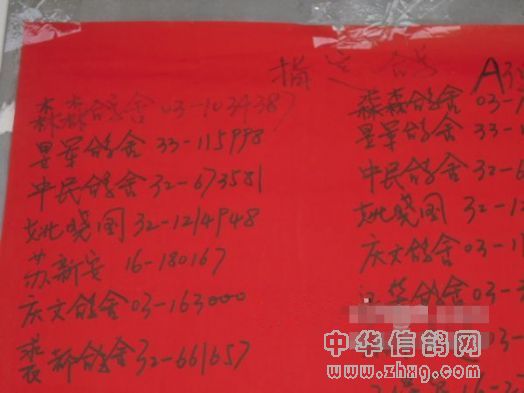 指定鸽舍 A
森森鸽舍 03-1034387
昱军鸽舍 33-115998
中民鸽舍 32-673581
姚晓国 32-1214948
苏新安 16-180167
庆文鸽舍 03-163000
裘都鸽舍 32-661657
淼森鸽舍 03-
昱军鸽舍 33-
中民鸽舍 32-6
姚晓国 32-12
庆文鸽舍 03-1
华鸽舍 03-
中华信鸽网
www.zhxg.com